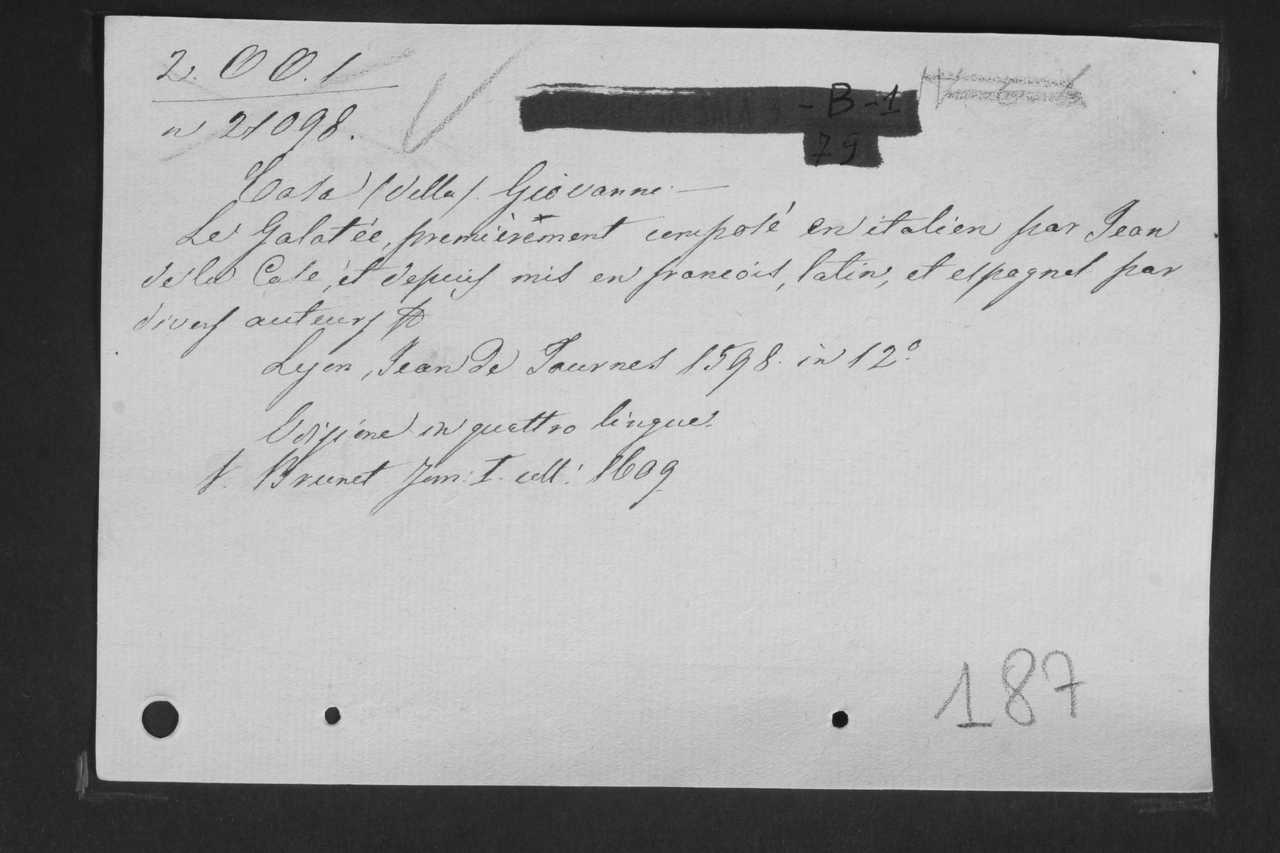 2. OO. 1
n 21098.
- B - 1
79
Casa (Della) Giovanne.
Le Galatée, premièrement composé en italien par Jean
de la Case, et depuis mis en francois, latin, et espagnol par
divers auteurs
Lyon, Jean de Tournes 1598. in 12º
Edizione in quattro lingue.
V. Brunet Tom: I. coll: 1609.
187